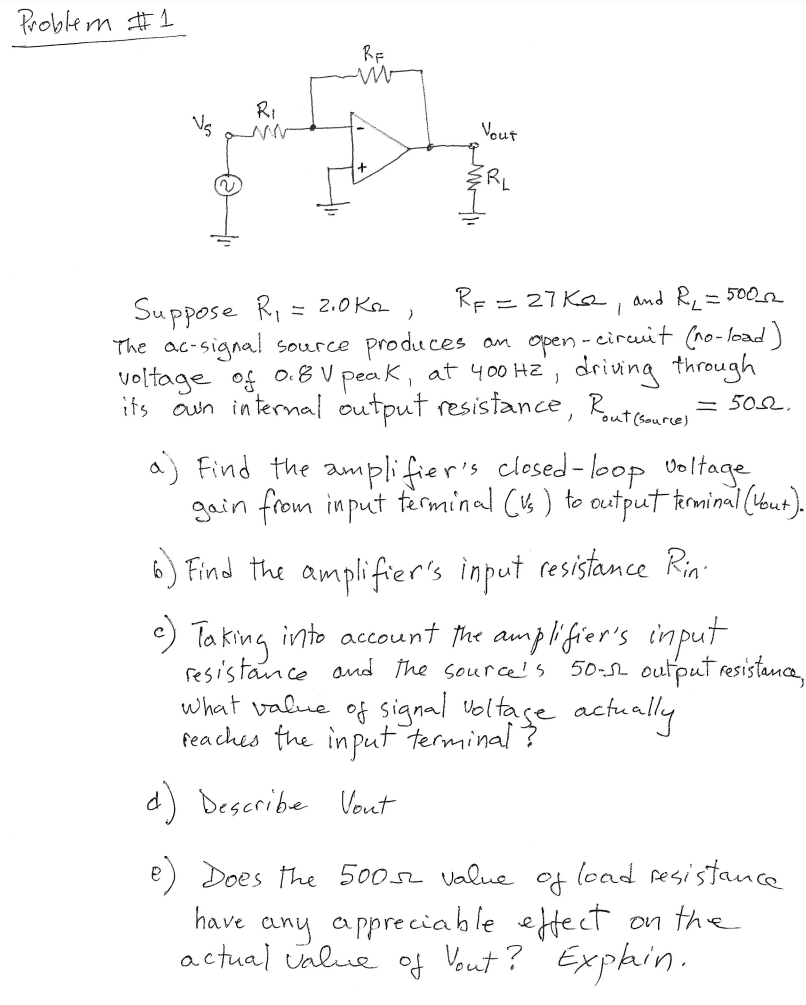 Problem #1
RF
R1
Vs
Vout
-
+
RL
Suppose R1 = 2.0 KΩ , RF = 27 KΩ , and RL = 500Ω
The ac-signal source produces an open-circuit (no-load)
voltage of 0.8 V peak, at 400 HZ, driving through
its own internal output resistance, Rout(source) = 50Ω.
a) Find the amplifier's closed-loop voltage
gain from input terminal (Vs) to output terminal (Vout).
b) Find the amplifier's input resistance Rin.
c) Taking into account the amplifier's input
resistance and the source's 50-Ω output resistance,
what value of signal voltage actually
reaches the input terminal?
d) Describe Vout
e) Does the 500Ω value of load resistance
have any appreciable effect on the
actual value of Vout? Explain.